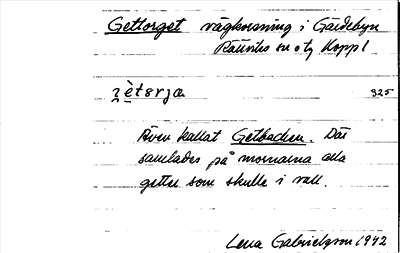 Gettorget vägkorsning i Gärdebyn
Rättviks sn o tg Kopp l
325
Även kallat Getbacken. Där
samlades på mornarna alla
getter som skulle i vall.
Lena Gabrielsson 1942